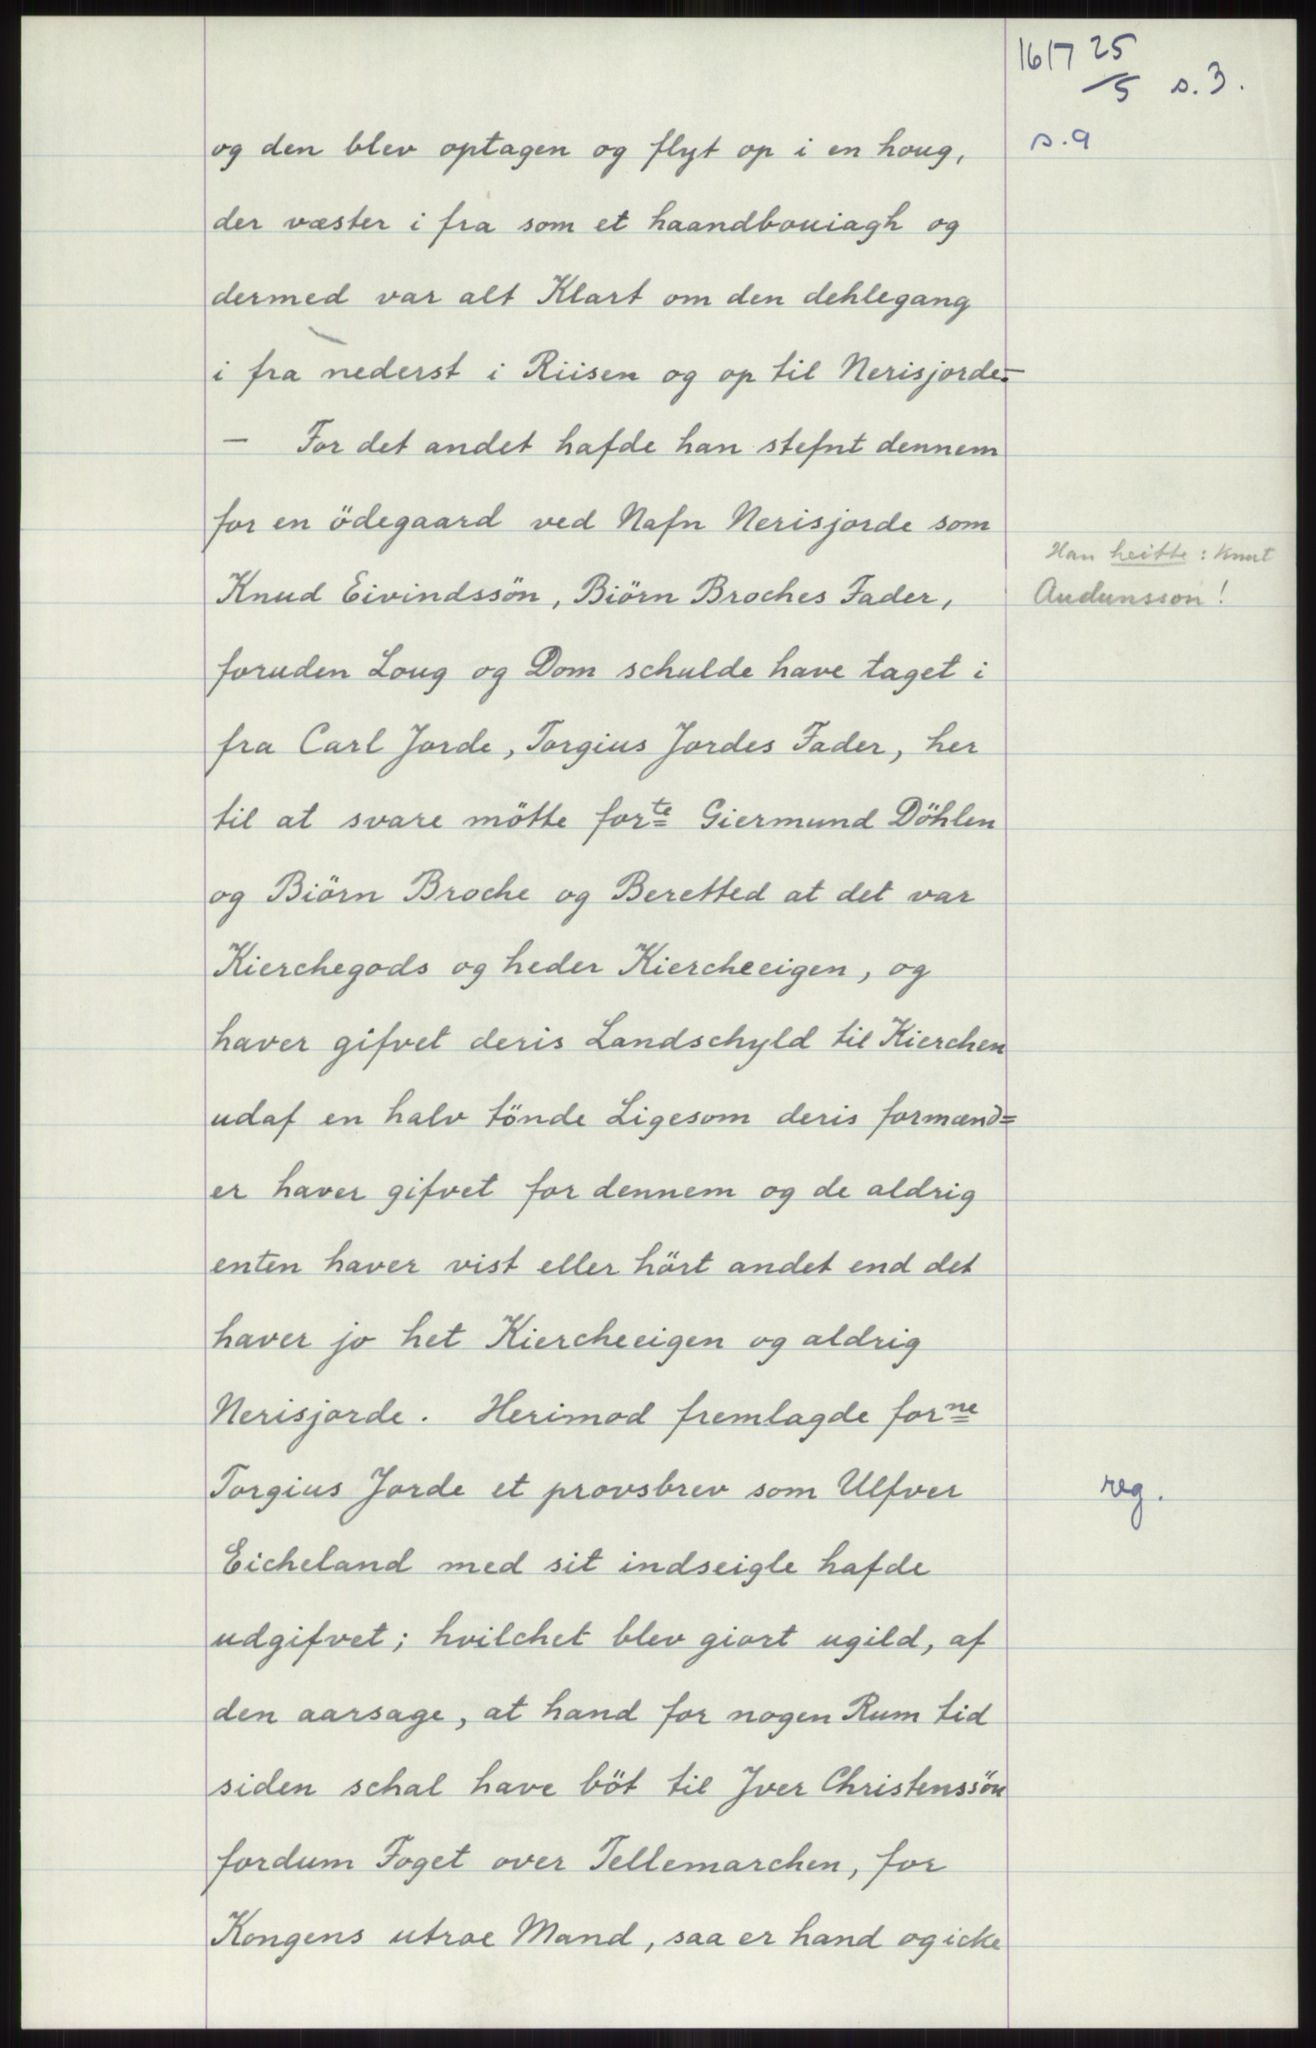 1617 25/5 s. 3.
s. 9
og den blev optagen og flyt op i en houg,
der væster i fra som et haandbouiagh og
dermed var alt Klart om den dehlegang
i fra nederst i Riisen og op til Nerisjorde.-
- For det andet hafde han stefnt dennem
for en ödegaard ved Nafn Nerisjorde som
Han heitte: Knut
Knud Eivindssön, Biörn Broches Fader,
Audunsson!
foruden Loug og Dom schulde have taget i
fra Carl Jorde, Torgius Jordes Fader, her
til at svare mötte forte Giermund Döhlen
og Biörn Broche og Beretted at det var
Kierchegods og heder Kiercheeigen, og
haver gifvet deris Landschyld til Kierchen
udaf en halv tönde Ligesom deris formænd=
er haver gifvet for dennem og de aldrig
enten haver vist eller hört andet end det
haver jo het Kiercheeigen og aldrig
Nerisjorde. Herimod fremlagde forne
Torgius Jorde et provsbrev som Ulfver
reg.
Eicheland med sit indseigle hafde
udgifvet; hvilchet blev giort ugild, af
den aarsage, at hand for nogen Rum tid
siden schal have böt til Jver Christenssön
fordum Foget over Tellemarchen, for
Kongens utroe Mand, saa er hand og icke